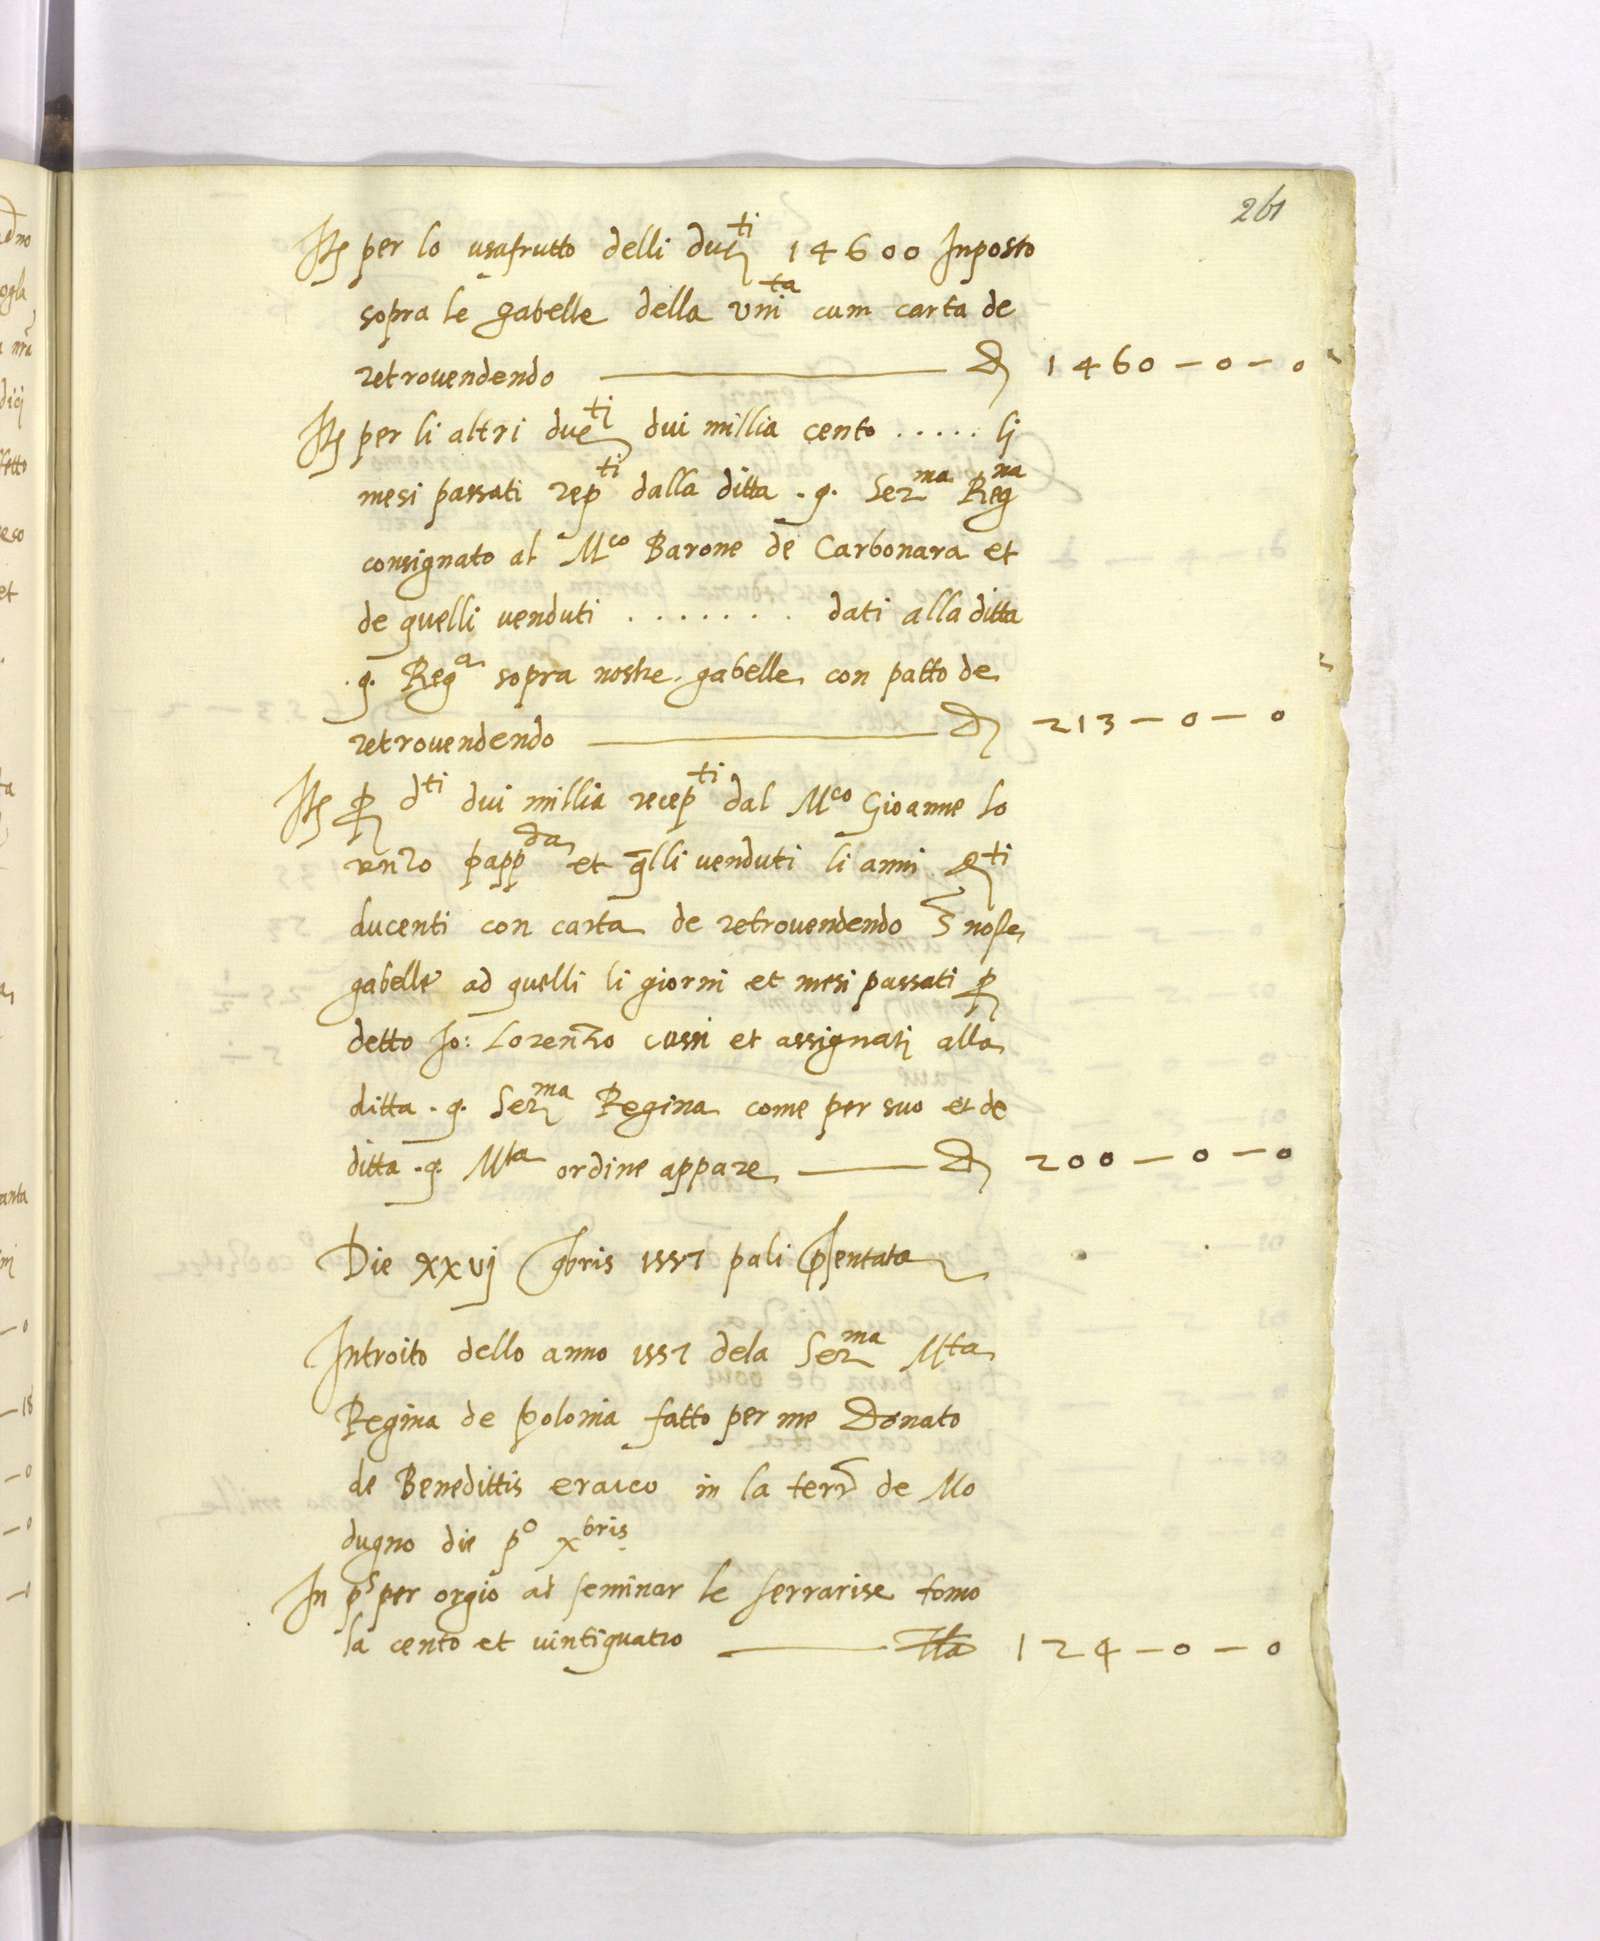 261
It per lo usafrutto delli duc.ti 14600 Inposto
sopra le gabelle della Uni.ta cum carta de
retrovendendo D 1460 - 0 - 0
It per li altri duc.ti dui millia cento ..... lj
mesi passati rep.ti dalla ditta .q. Ser.ma Reg.na
consignato al M.co Barone de Carbonara et
de quelli venduti ....... dati alla ditta
.q. Reg.a sopra nostre gabelle con patto de
retrovendendo D 213 - 0 - 0
It p d.ti dui millia recep.ti dal M.co Gioanne Lo
renzo papp.da et qlli venduti li anni
ducenti con carta de retrovendendo S noste
gabelle ad quelli li giorni et mesi passati p
detto Jo: Lorenzo cassi et assignati alla
ditta .q. Ser.ma Regina come per suo et de
ditta .q. M.ta ordine appare D 200 - 0 - 0
Die xxvj 9bris 1557 pali pſentata
Introito dello anno 1557 dela Ser.ma M.ta
Regina de Polonia fatto per me Donato
de Benedittis eraico in la terr de Mo
dugno die p.o x.bris
In p.s per orgio ad seminar le serrarise tomo
la cento et vintiquatro tla 124 - 0 - 0